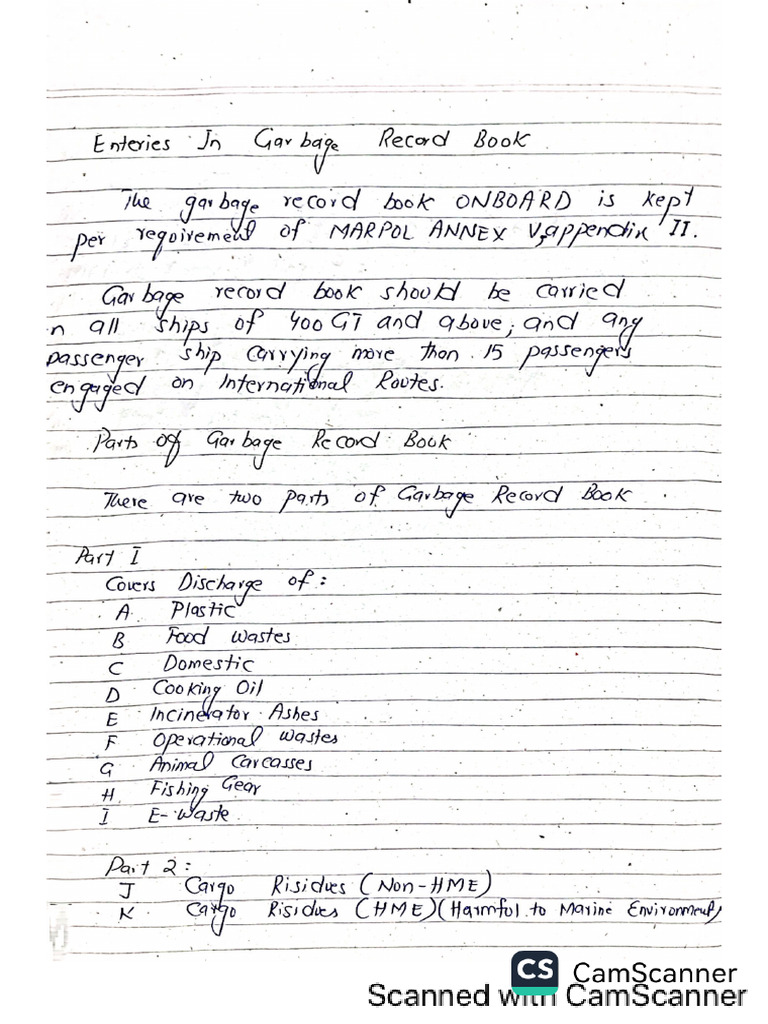 Enteries In Garbage Record Book
The garbage record book ONBOARD is kept
per requirement of MARPOL ANNEX V, appendix II.
Garbage record book should be carried
n all ships of 400 GT and above, and any
passenger ship carrying more than 15 passengers
engaged on International Routes.
Parts of Garbage Record Book
There are two parts of Garbage Record Book.
Part I
Covers Discharge of :
A. Plastic
B Food wastes
C Domestic
D Cooking Oil
E Incinerator Ashes
F Operational wastes
G Animal Carcasses
H Fishing Gear
I E-waste
Part 2 :
J Cargo Risidues (Non-HME)
K Cargo Risidues (HME) (Harmful to Marine Environment)
CS CamScanner
Scanned with CamScanner